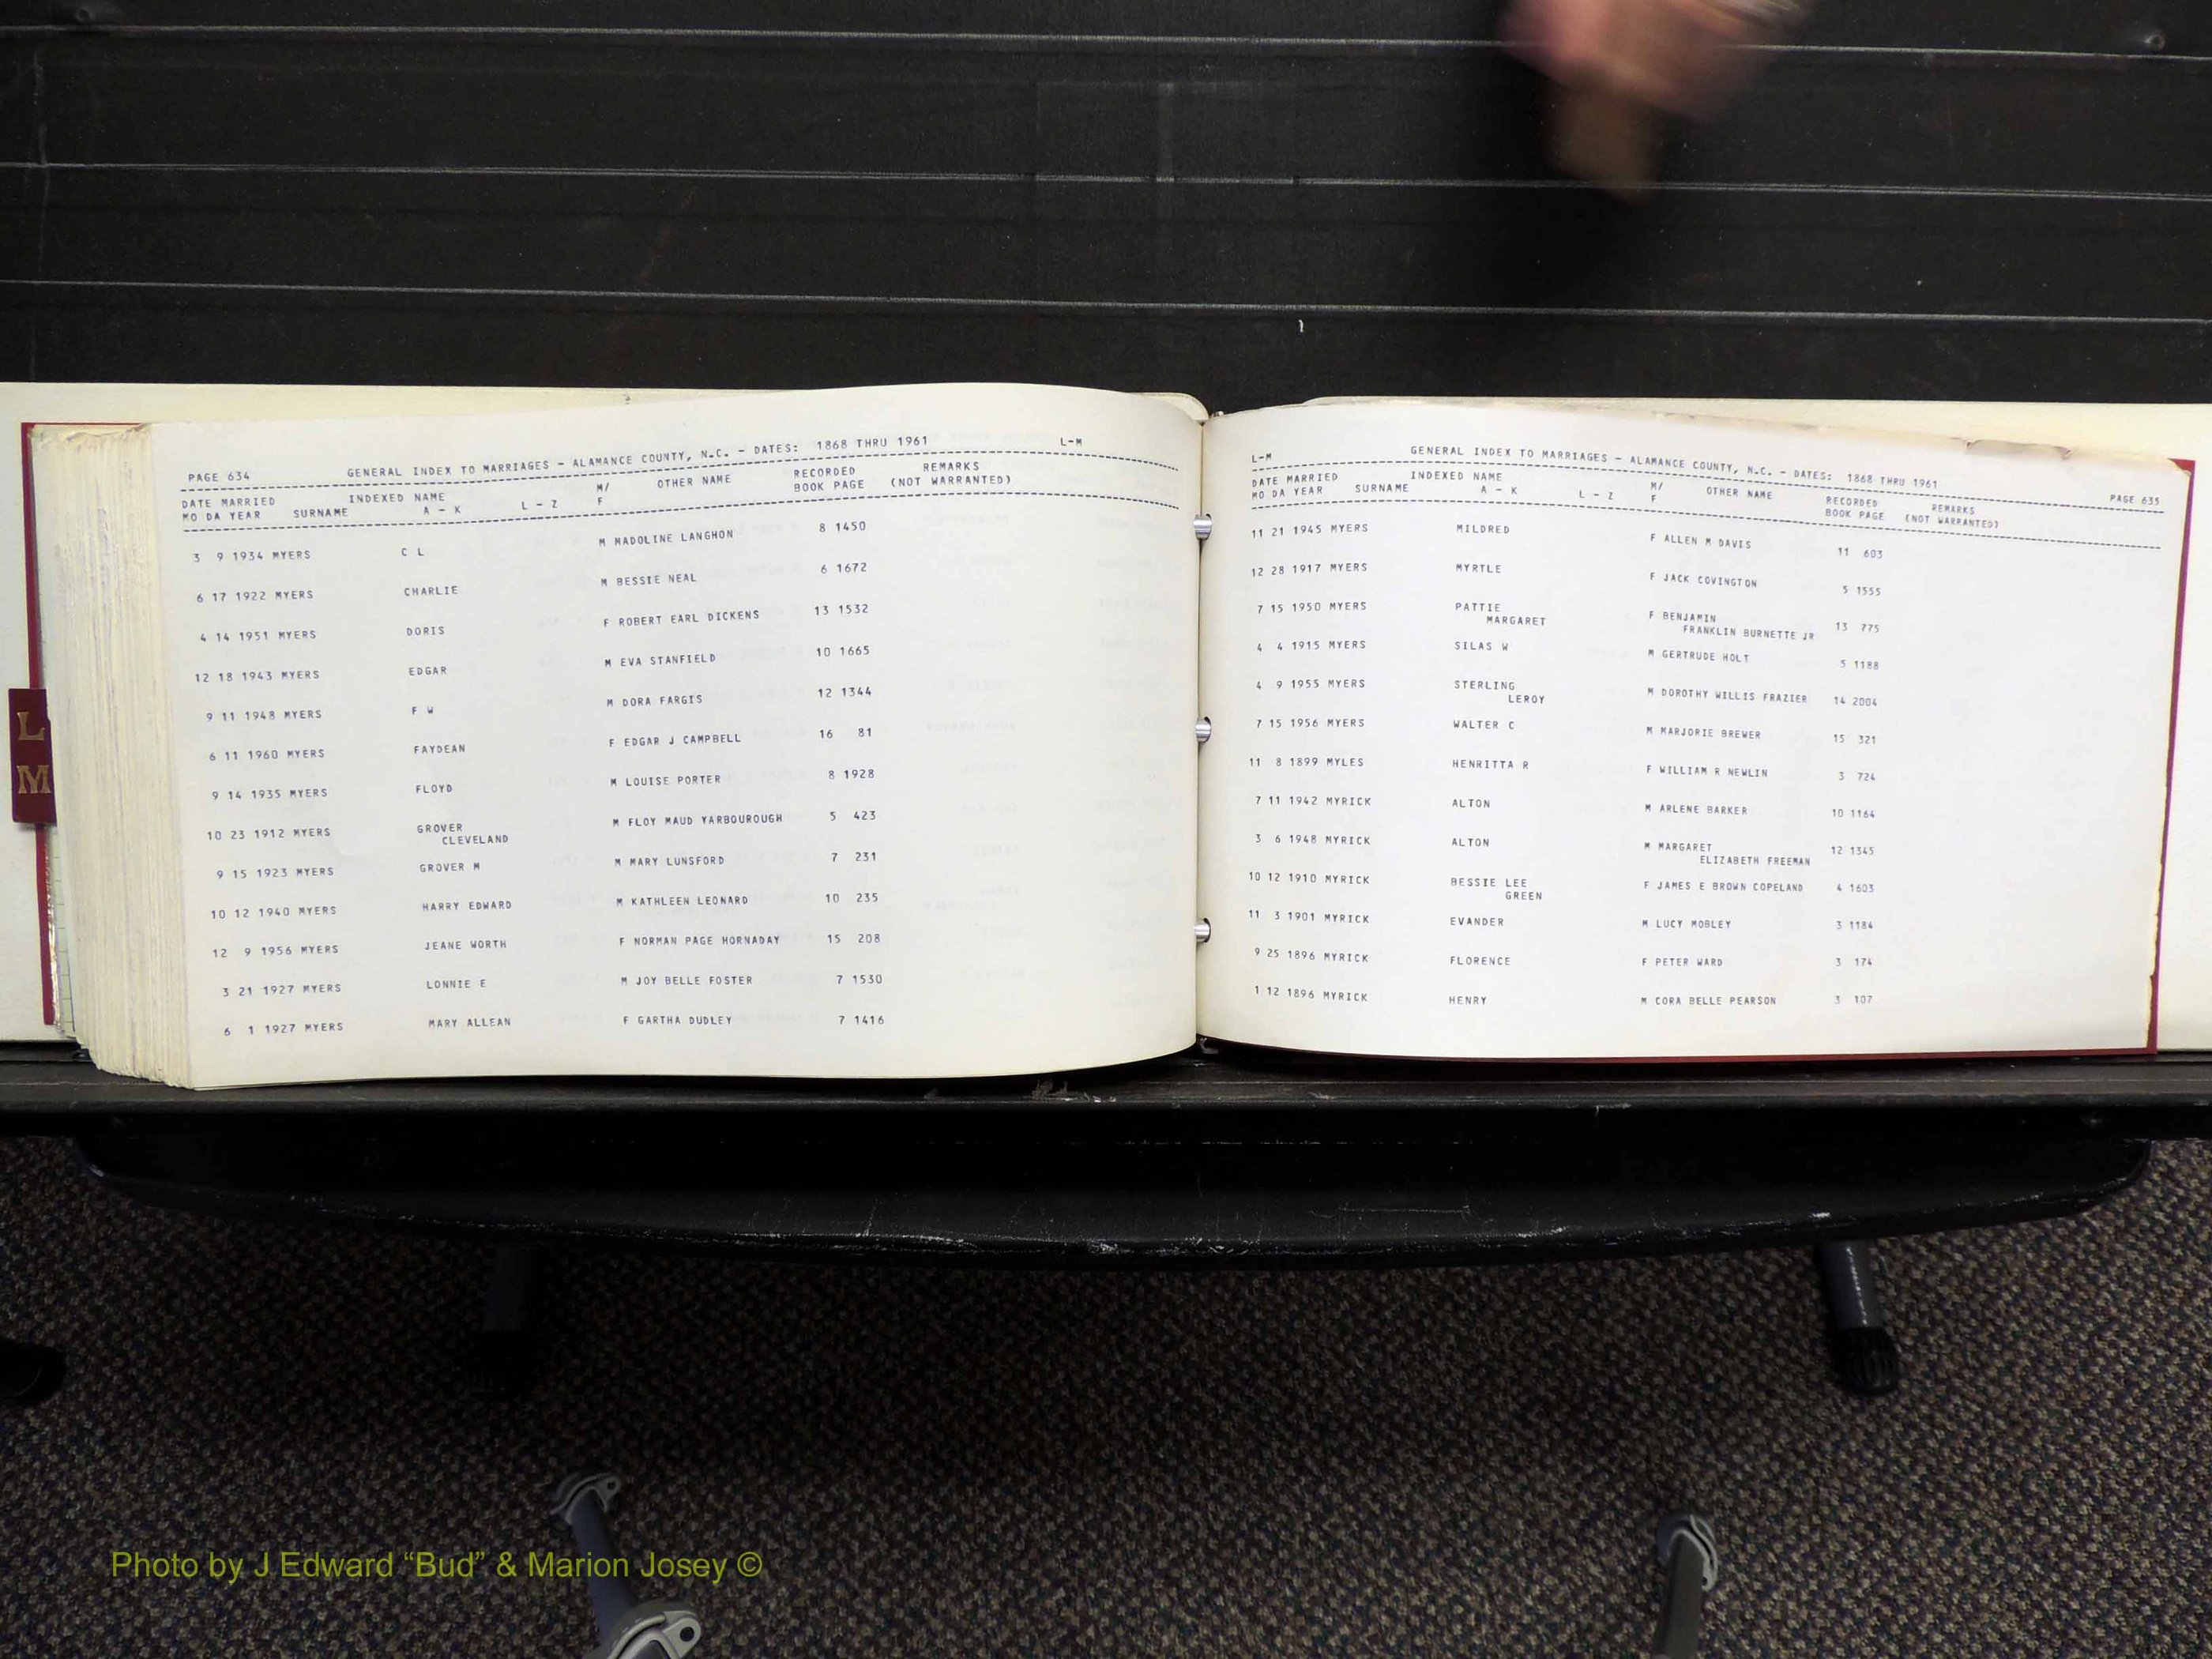 L
M
PAGE 634 GENERAL INDEX TO MARRIAGES - ALAMANCE COUNTY, N.C. - DATES: 1868 THRU 1961 L-M
DATE MARRIED INDEXED NAME M/ OTHER NAME RECORDED REMARKS
MO DA YEAR SURNAME A - K L - Z F BOOK PAGE (NOT WARRANTED)
3 9 1934 MYERS C L M MADOLINE LANGHON 8 1450
6 17 1922 MYERS CHARLIE M BESSIE NEAL 6 1672
4 14 1951 MYERS DORIS F ROBERT EARL DICKENS 13 1532
12 18 1943 MYERS EDGAR M EVA STANFIELD 10 1665
9 11 1948 MYERS F W M DORA FARGIS 12 1344
6 11 1960 MYERS FAYDEAN F EDGAR J CAMPBELL 16 81
9 14 1935 MYERS FLOYD M LOUISE PORTER 8 1928
10 23 1912 MYERS GROVER M FLOY MAUD YARBOUROUGH 5 423
CLEVELAND
9 15 1923 MYERS GROVER M M MARY LUNSFORD 7 231
10 12 1940 MYERS HARRY EDWARD M KATHLEEN LEONARD 10 235
12 9 1956 MYERS JEANE WORTH F NORMAN PAGE HORNADAY 15 208
3 21 1927 MYERS LONNIE E M JOY BELLE FOSTER 7 1530
6 1 1927 MYERS MARY ALLEAN F GARTHA DUDLEY 7 1416
L-M GENERAL INDEX TO MARRIAGES - ALAMANCE COUNTY, N.C. - DATES: 1868 THRU 1961 PAGE 635
DATE MARRIED INDEXED NAME M/ OTHER NAME RECORDED REMARKS
MO DA YEAR SURNAME A - K L - Z F BOOK PAGE (NOT WARRANTED)
11 21 1945 MYERS MILDRED F ALLEN M DAVIS 11 603
12 28 1917 MYERS MYRTLE F JACK COVINGTON 5 1555
7 15 1950 MYERS PATTIE F BENJAMIN 13 775
MARGARET FRANKLIN BURNETTE JR
4 4 1915 MYERS SILAS W M GERTRUDE HOLT 5 1188
4 9 1955 MYERS STERLING M DOROTHY WILLIS FRAZIER 14 2004
LEROY
7 15 1956 MYERS WALTER C M MARJORIE BREWER 15 321
11 8 1899 MYLES HENRITTA R F WILLIAM R NEWLIN 3 724
7 11 1942 MYRICK ALTON M ARLENE BARKER 10 1164
3 6 1948 MYRICK ALTON M MARGARET 12 1345
ELIZABETH FREEMAN
10 12 1910 MYRICK BESSIE LEE F JAMES E BROWN COPELAND 4 1603
GREEN
11 3 1901 MYRICK EVANDER M LUCY MOBLEY 3 1184
9 25 1896 MYRICK FLORENCE F PETER WARD 3 174
1 12 1896 MYRICK HENRY M CORA BELLE PEARSON 3 107
Photo by J Edward “Bud” & Marion Josey ©